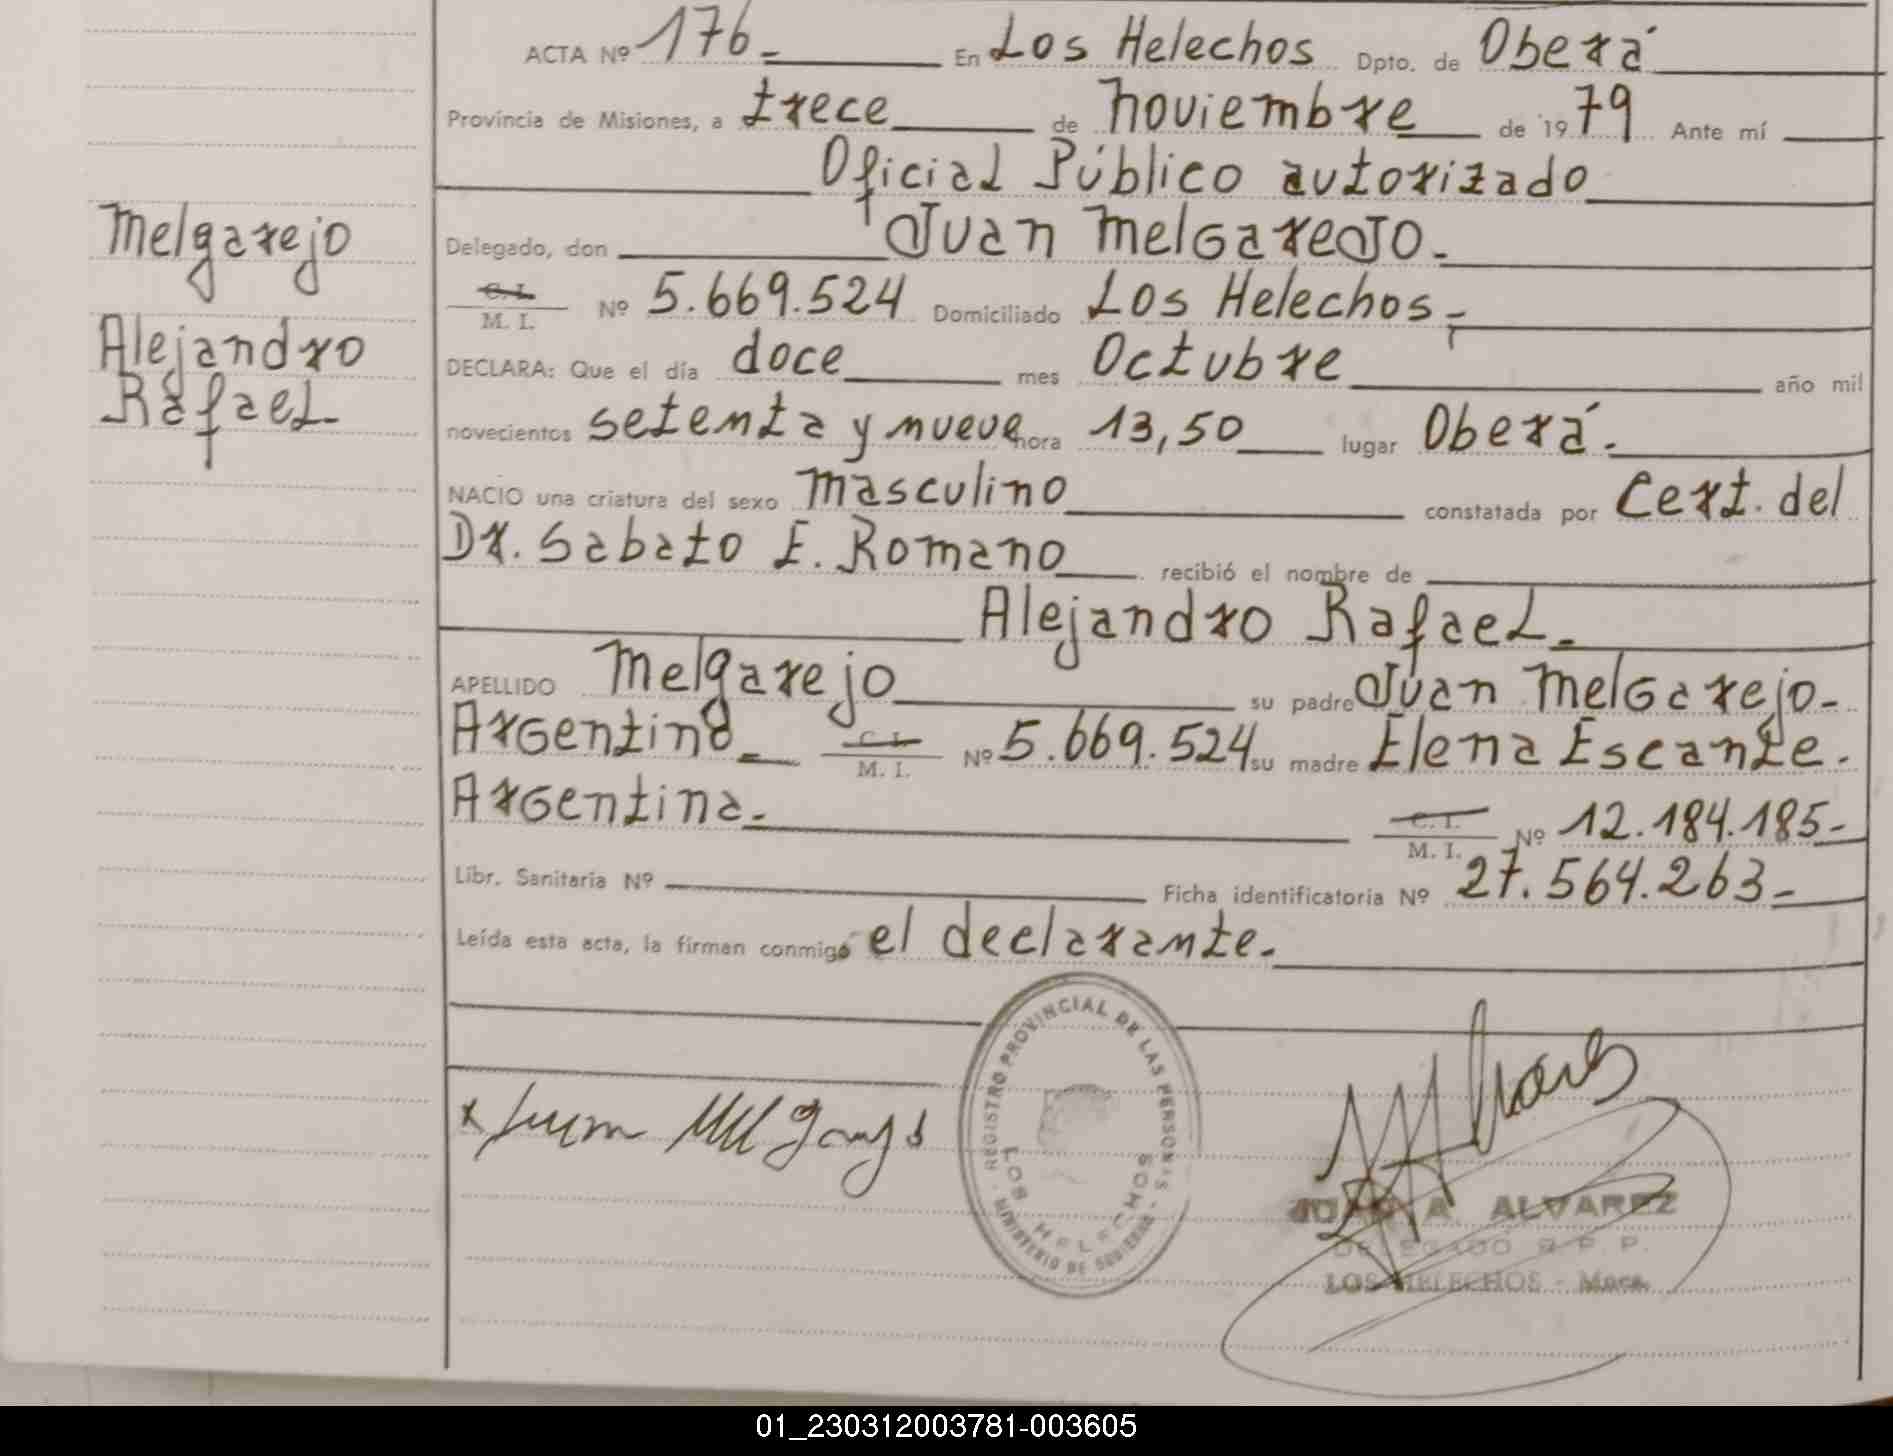 ACTA Nº 176_ En Los Helechos Dpto. de Oberá
Provincia de Misiones, a trece de noviembre de 1979 Ante mí
Oficial Público autorizado
Delegado, don Juan MelGareJo.
C. I. M. I. Nº 5.669.524 Domiciliado Los Helechos.
DECLARA: Que el día doce mes Octubre año mil
novecientos setenta y nueve hora 13,50 lugar Oberá.
NACIO una criatura del sexo masculino constatada por Cert. del
Dr. Sabato E. Romano recibió el nombre de
Alejandro Rafael.
APELLIDO Melgarejo su padre Juan MelGarejo.
ArGentino C. I. M. I. Nº 5.669.524 su madre Elena Escante.
ArGentina. C. I. M. I. Nº 12.184.185-
Libr. Sanitaria Nº Ficha identificatoria Nº 27.564.263-
Leída esta acta, la firman conmigo el declarante.
Melgarejo
Alejandro
Rafael
REGISTRO PROVINCIAL DE LAS PERSONAS
MINISTERIO DE GOBIERNO
LOS HELECHOS
x Juan Melgarejo
A. ALVAREZ
DELEGADO R. P. P.
LOS HELECHOS - Mnes.
01_230312003781-003605